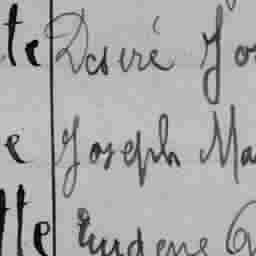 te Desiré Jo
e Joseph Ma
tte Eugene